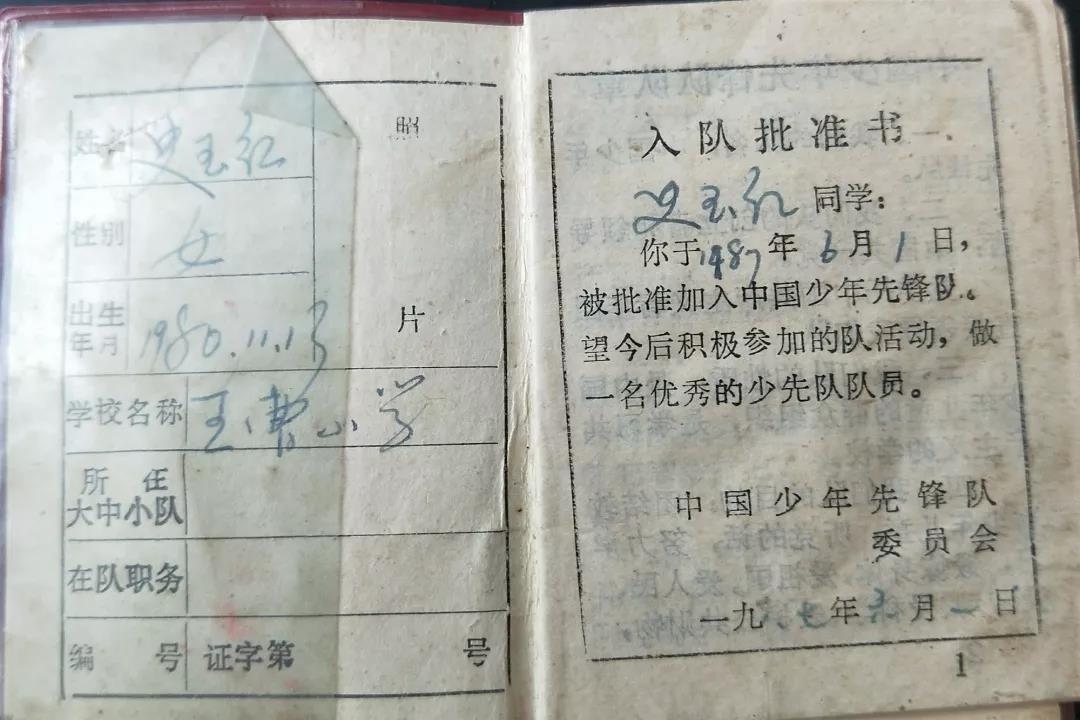 姓名 史玉红
照
性别 女
出生
年月 1980.11.13
片
学校名称 王曹小学
所任
大中小队
在队职务
编号 证字第 号
入队批准书
史玉红 同学：
你于1987年6月1日，
被批准加入中国少年先锋队。
望今后积极参加的队活动，做
一名优秀的少先队队员。
中国少年先锋队
委员会
一九八七年六月一日
1